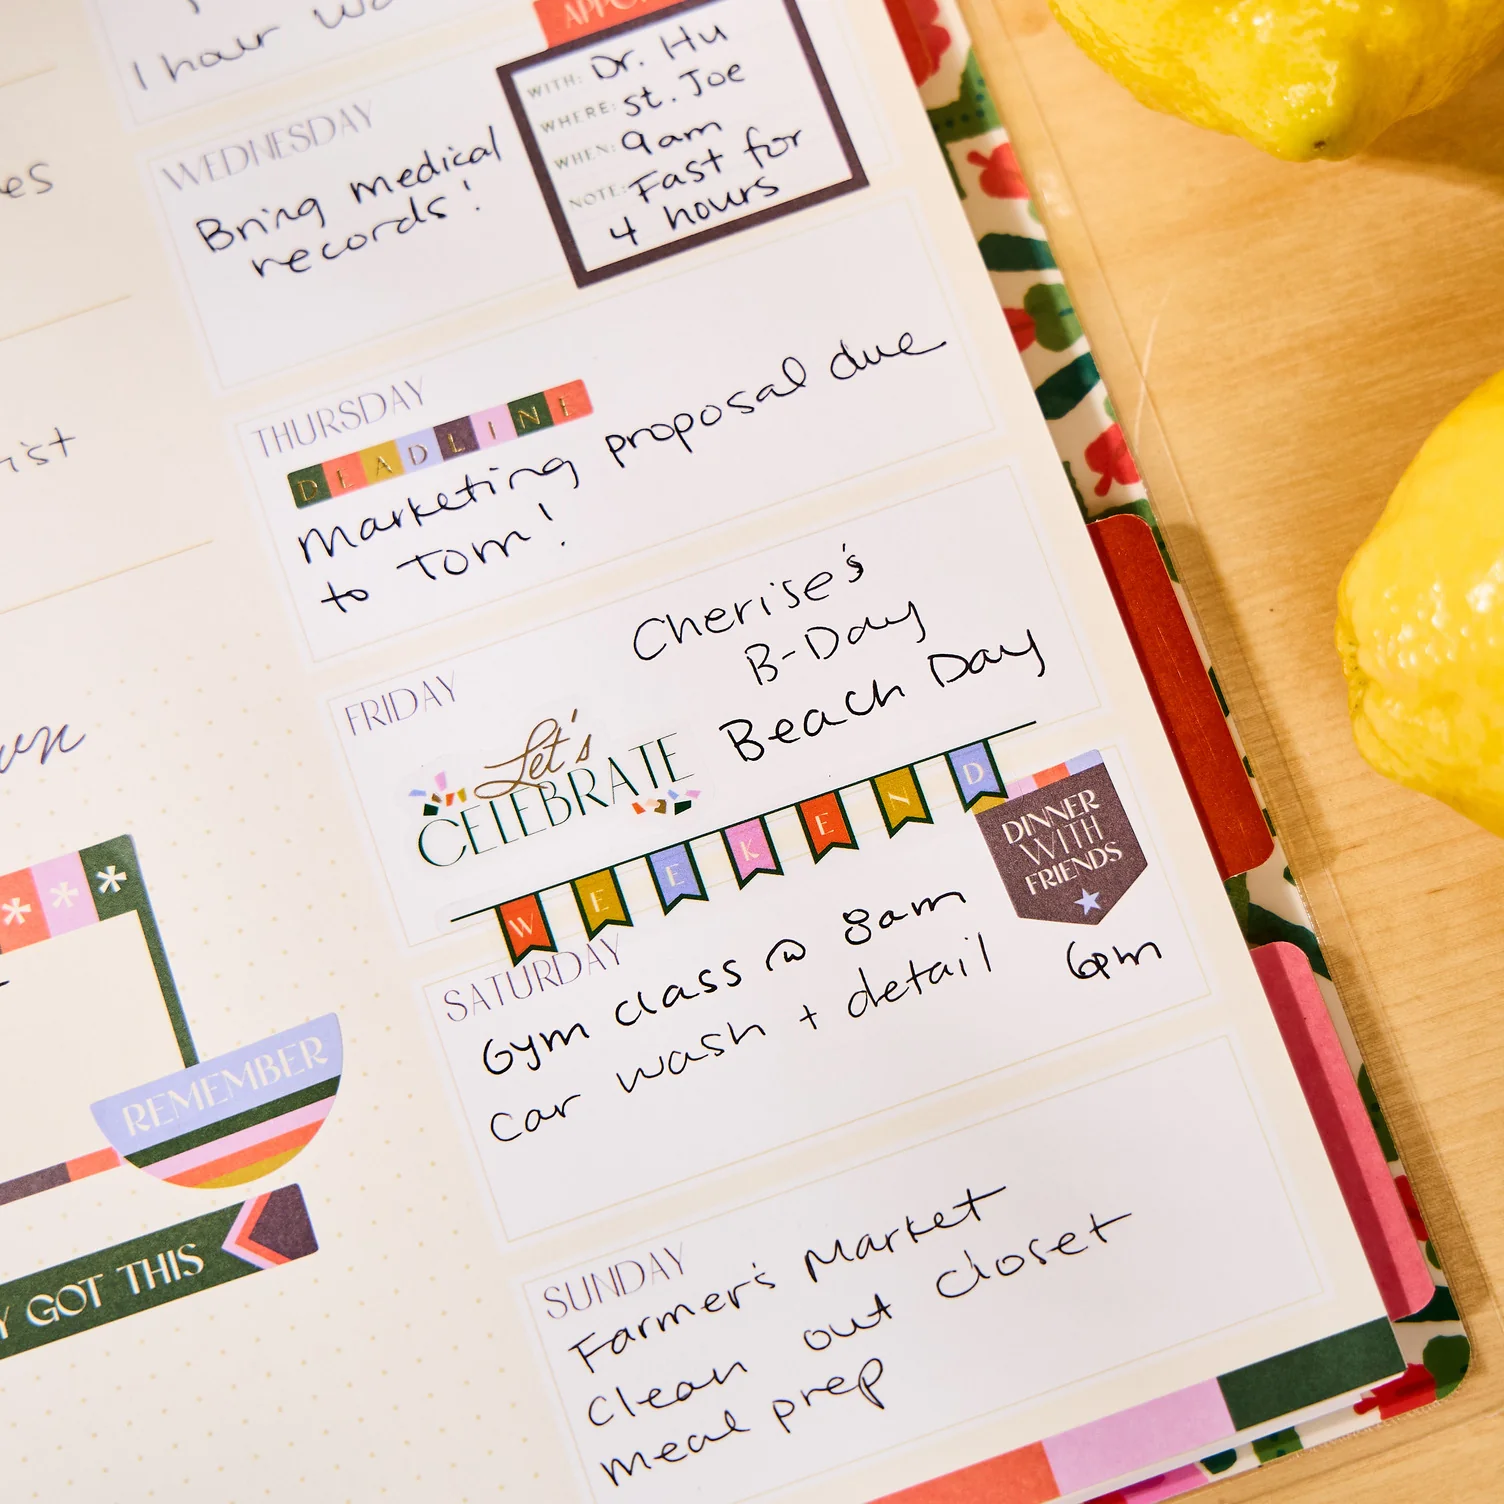 1 hour
WEDNESDAY
Bring medical
records!
WITH: Dr. Hu
WHERE: St. Joe
WHEN: 9am
NOTE: Fast for
4 hours
THURSDAY
DEADLINE
Marketing proposal due
to Tom!
FRIDAY
Cherise's
B-Day
Beach Day
Let's
CELEBRATE
WEEKEND
DINNER
WITH
FRIENDS
6pm
SATURDAY
Gym class @ 8am
Car wash + detail
SUNDAY
Farmer's Market
Clean out closet
meal prep
REMEMBER
GOT THIS